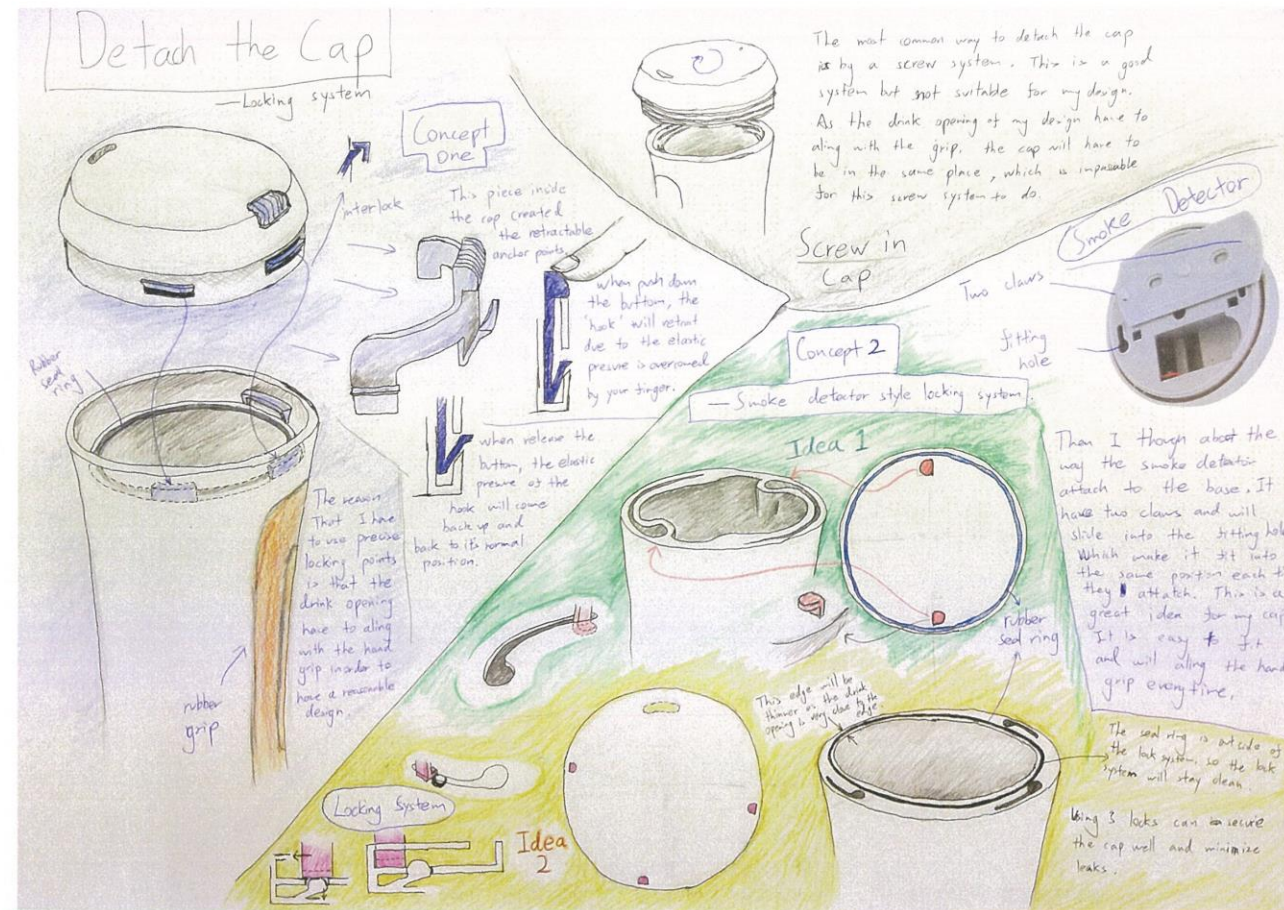 Detach the Cap
— Locking system
Concept
One
interlock
This piece inside
the cap created
the retractable
anchor points.
when push down
the buttom, the
'hook' will retrat
due to the elastic
presure is overcomed
by your finger.
when release the
buttom, the elastic
presure of the
hook will come
back up and
back to it's normal
position.
Rubber
seal
ring
The reason
That I have
to use precise
locking points
is that the
drink opening
have to aling
with the hand
grip inorder to
have a reasonable
design.
rubber
grip
The most common way to detach the cap
is by a screw system. This is a good
system but not suitable for my design.
As the drink opening of my design have to
aling with the grip. the cap will have to
be in the same place, which is impassable
for this screw system to do.
Screw in
Cap
Smoke Detector
Two claws
fitting
hole
Concept 2
— Smoke detector style locking system.
Then I though about the
way the smoke detector
attach to the base. It
have two claws and will
slide into the fitting hole
Which make it fit into
the same position each
they attatch. This is a
great idea for my
It is easy to fit
and will aling the hand
grip everytime.
Idea 1
rubber
seal ring
This edge will be
thinner as the drink
opening is very close to the
edge.
The seal ring is outside of
the lock system, so the lock
system will stay clean.
Using 3 locks can secure
the cap well and minimize
leaks.
Locking System
Idea
2